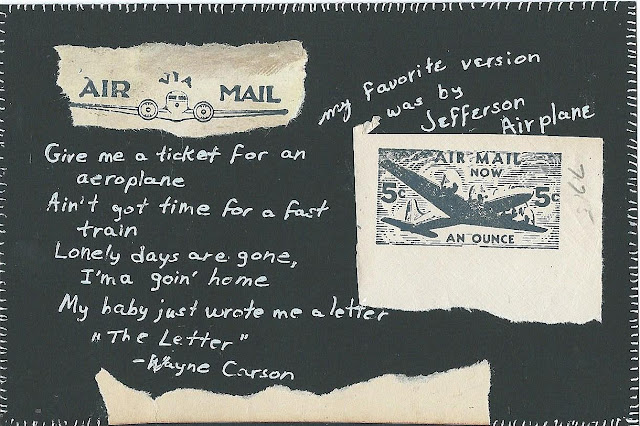 VIA
AIR MAIL
my favorite version
was by
Jefferson
Airplane
Give me a ticket for an
aeroplane
Ain't got time for a fast
train
Lonely days are gone,
I'ma goin' home
My baby just wrote me a letter
"The Letter"
-Wayne Carson
AIR MAIL
NOW
5c 5c
AN OUNCE